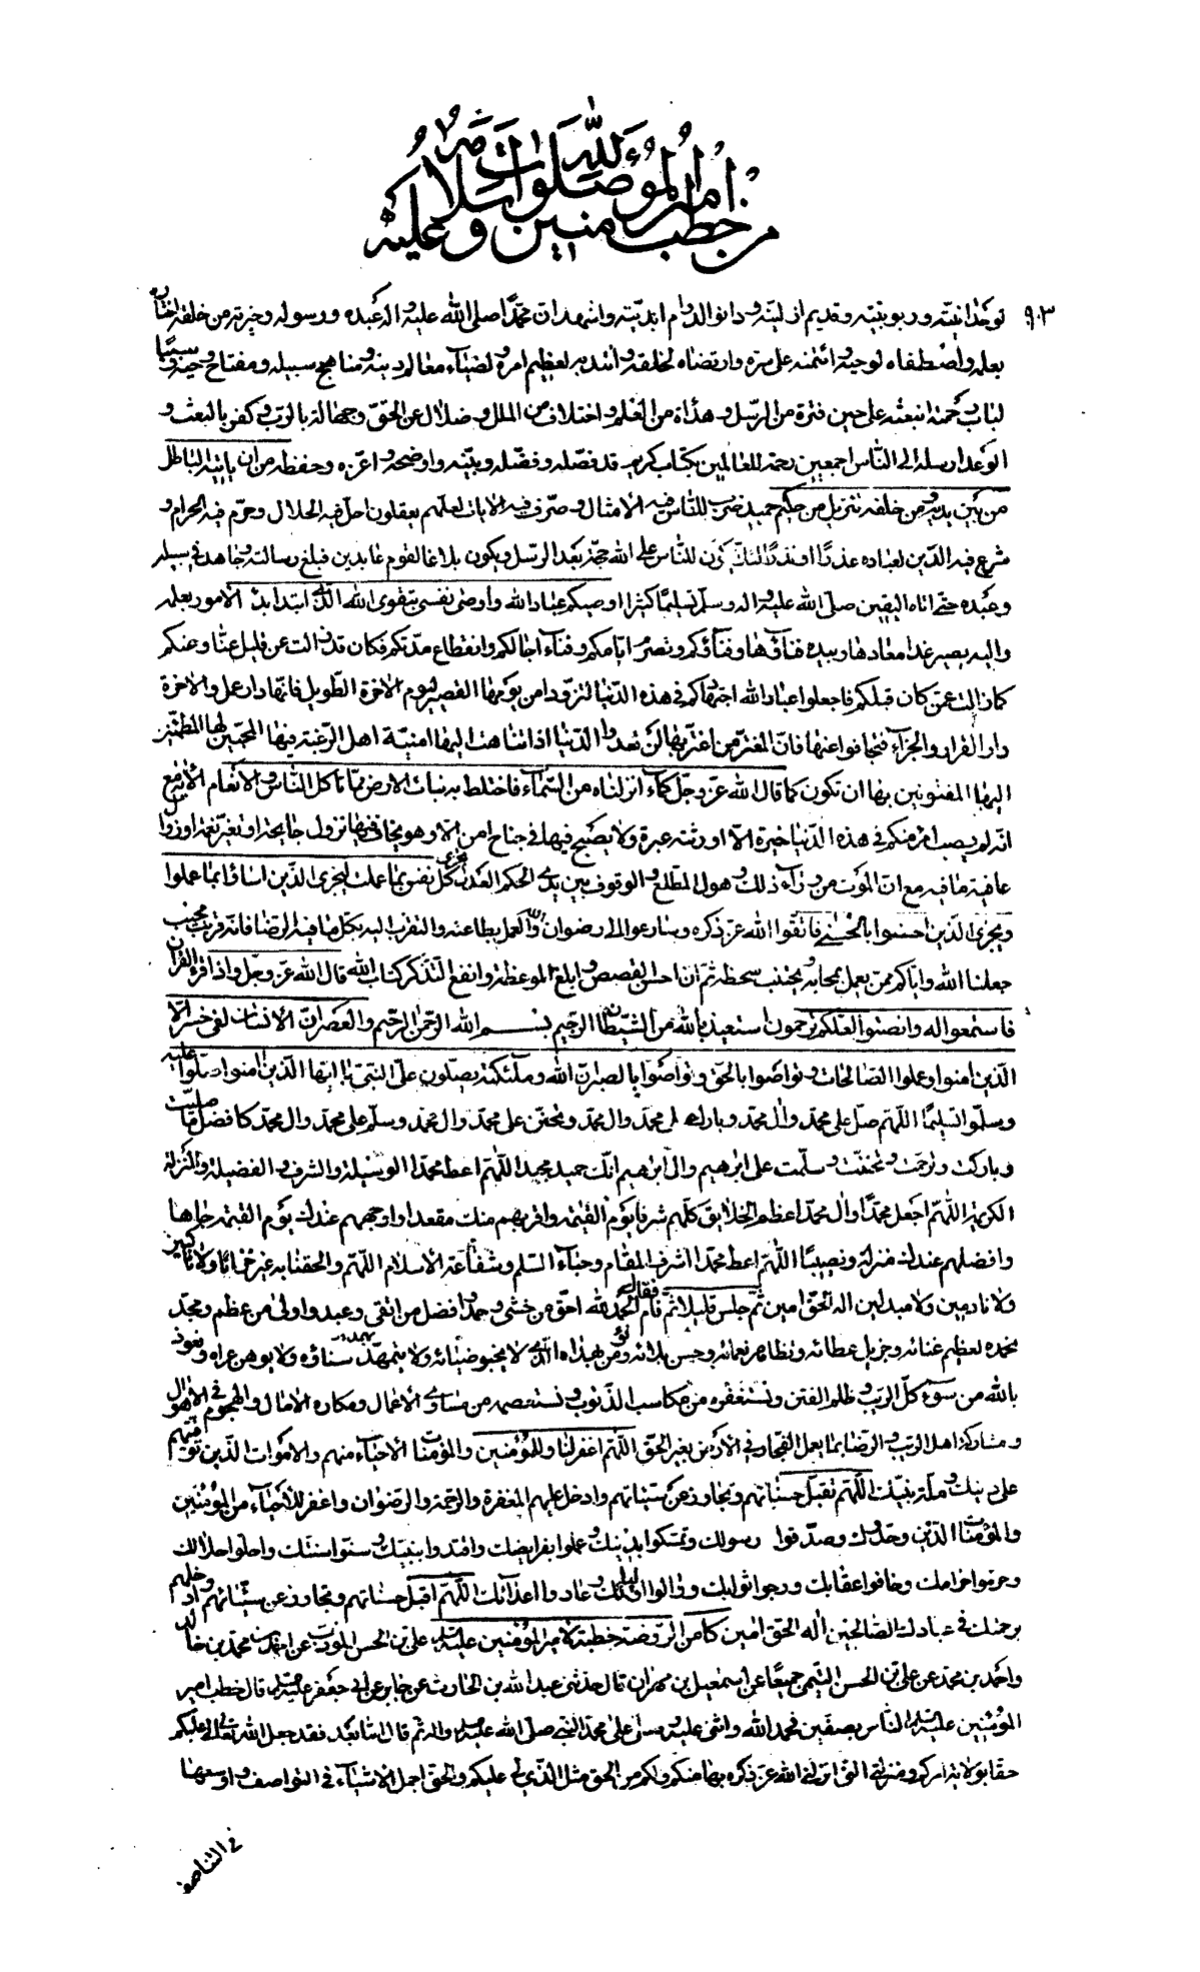 من خطب أمير المؤمنين صلوات الله وسلامه عليه
٩٠٣
لوحدانيته وربوبيته وقديم ازليته ودانوا لدوام ابديته واشهد ان محمدا صلى الله عليه واله عبده ورسوله وخيرته من خلقه اختاره
بعلمه واصطفاه لوحيه وائتمنه على سره وارتضاه لخلقه وانتدبه لعظيم امره ولضياء معالم دينه ومناهج سبيله ومفتاح وحيه وسببا
لباب رحمته ابتعثه على حين فترة من الرسل وهدأة من العلم واختلاف من الملل وضلال عن الحق وجهالة بالرب وكفر بالبعث و
الوعد ارسله الى الناس اجمعين رحمة للعالمين بكتاب كريم قد فصله وفضله وبينه واوضحه واعزه وحفظه من ان ياتيه الباطل
من بين يديه ومن خلفه تنزيل من حكيم حميد ضرب للناس فيه الامثال وصرف فيه الايات لعلهم يعقلون احل فيه الحلال وحرم فيه الحرام و
شرع فيه الدين لعباده عذرا او نذرا لئلا يكون للناس على الله حجة بعد الرسل ويكون بلاغا لقوم عابدين فبلغ رسالته وجاهد في سبيله
وعبده حتى اتاه اليقين صلى الله عليه واله وسلم تسليما كثيرا اوصيكم عباد الله واوصى نفسى بتقوى الله الذى ابتدا بدء الامور بعلمه
واليه يصير غدا معادها وبيده فناؤها وفناؤكم وتصرم ايامكم وفناء اجالكم وانقطاع مدتكم فكان قد زالت عن قليل عنا وعنكم
كما زالت عمن كان قبلكم فاجعلوا عباد الله اجتهادكم في هذه الدنيا التزود من يومها القصير ليوم الاخرة الطويل فانها دار عمل والاخرة
دار القرار والجزاء فتجافوا عنها فان المغتر من اغتر بها لن تعدوا الدنيا اذا تناهت اليها امنية اهل الرغبة فيها المحبين لها المطمئنين
اليها المفتونين بها ان تكون كما قال الله عز وجل كماء انزلناه من السماء فاختلط به نبات الارض مما تاكل الناس والانعام الاية مع
انه لم يصب امرء منكم في هذه الدنيا حبرة الا اورثته عبرة ولا يصبح فيها في جناح امن الا وهو يخاف فيها نزول جايحة او تغير نعمة او زوال
عافية مافيه مع ان الموت من وراء ذلك وهول المطلع والوقوف بين يدى الحكم العدل تجزى كل نفس بما عملت ليجزى الذين اساؤا بما عملوا
ويجزى الذين احسنوا بالحسنى فاتقوا الله عز ذكره وسارعوا الى رضوان الله والعمل بطاعته والتقرب اليه بكل ما فيه الرضا فانه قريب مجيب
جعلنا الله واياكم ممن يعمل بمحابه ويجتنب سخطه ثم ان احسن القصص وابلغ الموعظة وانفع التذكر كتاب الله قال الله عز وجل واذا قرء القران
فاستمعوا له وانصتوا لعلكم ترحمون استعيذ بالله من الشيطان الرجيم بسم الله الرحمن الرحيم والعصر ان الانسان لفى خسر الا
الذين امنوا وعملوا الصالحات وتواصوا بالحق وتواصوا بالصبر ان الله وملئكته يصلون على النبى يا ايها الذين امنوا صلوا عليه
وسلموا تسليما اللهم صل على محمد وال محمد وبارك على محمد وال محمد وتحنن على محمد وال محمد وسلم على محمد وال محمد كافضل ما صليت
وباركت وترحمت وتحننت وسلمت على ابرهيم وال ابرهيم انك حميد مجيد اللهم اعط محمدا الوسيلة والشرف والفضيلة والمنزلة
الكريمة اللهم اجعل محمدا وال محمد اعظم الخلايق كلهم شرفا يوم القيمة واقربهم منك مقعدا واوجههم عندك يوم القيمة جاها
وافضلهم عندك منزلة ونصيبا اللهم اعط محمدا اشرف المقام وحباء السلم وشفاعة الاسلام اللهم والحقنا به غير خزايا ولا ناكبين
ولا نادمين ولا مبدلين اله الحق امين ثم جلس قليلا ثم قام فقال الحمد لله احق من خشى وحمد وافضل من اتقى وعبد واولى من عظم ومجد
نحمده لعظيم غنائه وجزيل عطائه وتظاهر نعمائه وحسن بلائه ونؤمن بهداه الذى لا يخبو ضيائه ولا يتمهد سناؤه ولا يوهن عراه ونعوذ
بالله من سوء كل الريب وظلم الفتن ونستغفره من مكاسب الذنوب ونستعصمه من مساوى الاعمال ومكاره الامال والهجوم في الاهوال
ومشاركة اهل الريب والرضا بما يعمل الفجار في الارض بغير الحق اللهم اغفر لنا وللمؤمنين والمؤمنات الاحياء منهم والاموات الذين توفيتهم
على دينك وملة نبيك اللهم تقبل حسناتهم وتجاوز عن سيئاتهم وادخل عليهم المغفرة والرحمة والرضوان واغفر للاحياء من المؤمنين
والمؤمنات الذين وحدوك وصدقوا رسولك وتمسكوا بدينك وعملوا بفرايضك واقتدوا بنبيك وسنوا سنتك واحلوا حلالك
وحرموا حرامك وخافوا عقابك ورجوا ثوابك ووالوا اوليائك وعادوا اعدائك اللهم اقبل حسناتهم وتجاوز عن سيئاتهم وادخلهم
برحمتك في عبادك الصالحين اله الحق امين كا من الروضة خطبة لامير المؤمنين عليه السلم على بن الحسن المؤدب عن احمد بن محمد بن خالد
واحمد بن محمد عن على بن الحسن التيمى جميعا عن اسمعيل بن مهران قال حدثنى عبد الله بن الحارث عن جابر عن ابى جعفر عليه السلم قال خطب امير
المؤمنين عليه السلم الناس بصفين فحمد الله واثنى عليه وصلى على محمد النبى صلى الله عليه واله ثم قال اما بعد فقد جعل الله تعالى لى عليكم
حقا بولاية امركم ومنزلتى التى انزلنى الله عز ذكره بها منكم ولكم من الحق مثل الذى لى عليكم والحق اجمل الاشياء في التواصف واوسعها
في التناصف